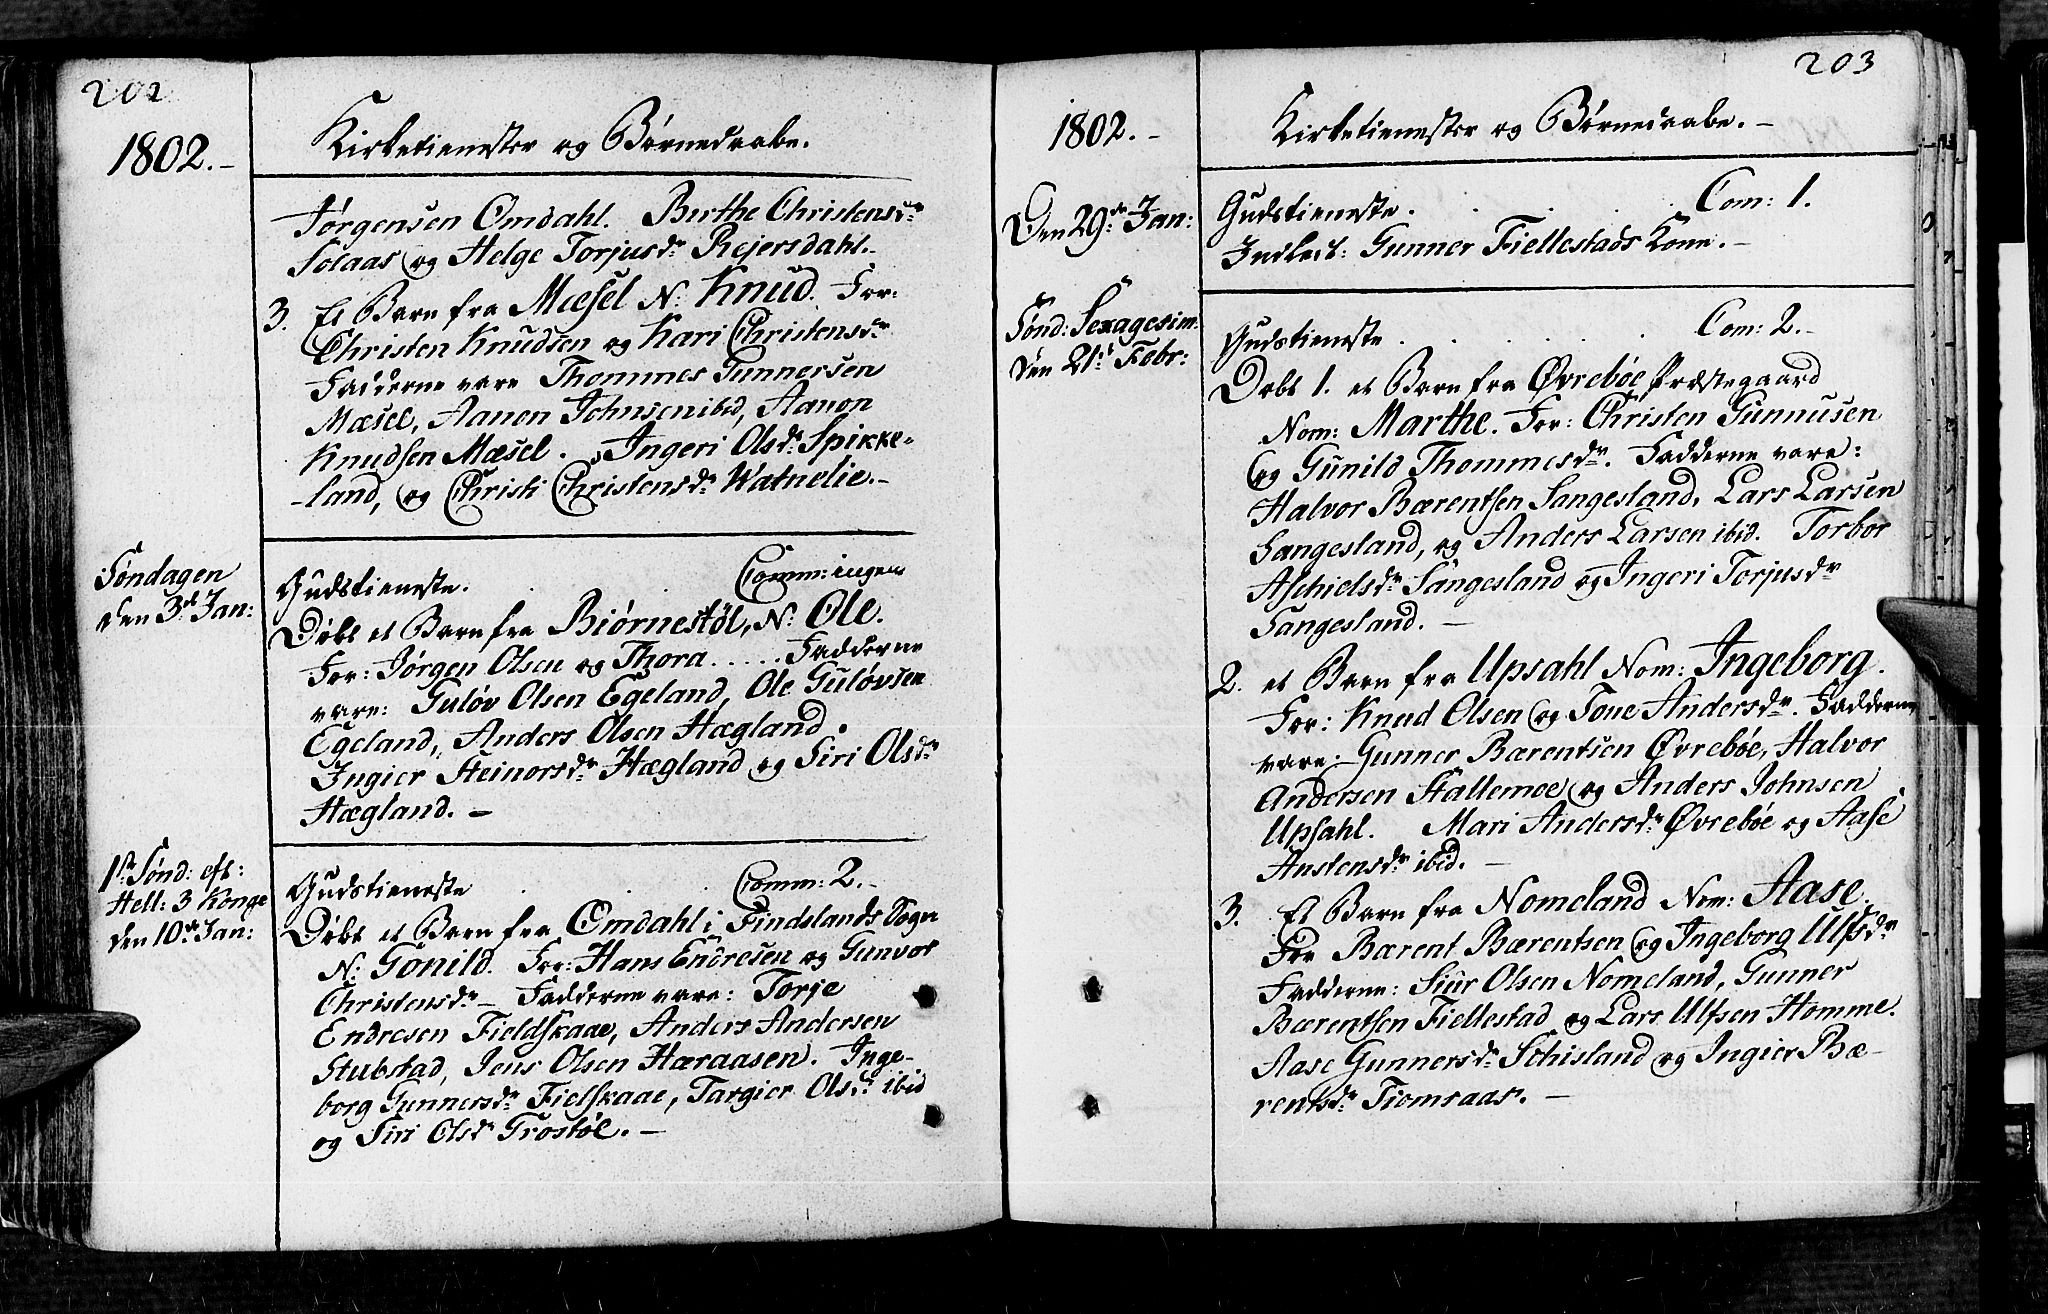 202
1802.-
Kirketienester og Børnedaabe.
Jørgensen Omdahl. Birthe Christensdr
Solaas og Helge Torjusdr Rejersdahl.-
3. Et Barn fra Mæsel N: Knud. For:
Christen Knudsen og Kari Christensdr
Fadderne vare Thommes Gunnersen
Mæsel, Aanon Johnsen ibid, Aanon
Knudsen Mæsel. Ingeri Olsdr Spikke-
land, og Christi Christensdr Watnelie.-
Søndagen
den 3de Jan:
Gudstieneste. Comm: ingen
Døbt et Barn fra Biørnestøl, N: Ole.
For: Jørgen Olsen og Thora ..... Fadderne
vare: Guløv Olsen Egeland, Ole Guløvsen
Egeland, Anders Olsen Hægland.
Ingier Steinorsdr Hægland og Siri Olsdr
Hægland. -
1ste Sønd: eft:
Hell: 3 Konge
den 10de Jan:
Gudstieneste Comm: 2.-
Døbt et Barn fra Omdahl i Findslands Sogn
N: Gonild. For: Hans Endresen og Gunvor
Christensdr - Fadderne vare: Torje
Endresen Fieldskaae, Anders Andersen
Stubstad, Jens Olsen Hæraasen. Inge-
borg Gunnersdr Fielskaae, Targier Olsdr ibid
og Siri Olsdr Grostøl. -
203
1802.-
Kirketienester og Børnedaabe. -
Den 29de Jan:
Gudstieneste. Com: 1.
Indled: Gunner Fiellestads Kone. -
Sønd: Sexagesim.
den 21de Febr:
Gudstieneste Com: 2.-
Døbt 1. et Barn fra Øvrebøe Præstegaard
Nom: Marthe. For: Christen Gunnusen
og Gunild Thommesdr. Fadderne vare:
Halvor Bærentsen Sangesland, Lars Larsen
Sangesland, og Anders Larsen ibid. Torbor
Aschielsdr Sangesland og Ingeri Torjusdr
Sangesland. -
2. et Barn fra Upsahl Nom: Ingeborg.
For: Knud Olsen og Tone Andersdr. Fadderne
vare: Gunner Bærentsen Øvrebøe, Halvor
Andersen Stallemoe og Anders Johnsen
Upsahl. Mari Andersdr Øvrebøe og Aase
Anstensdr ibid. -
3. Et Barn fra Nomeland Nom: Aase.
For Bærent Bærentsen og Ingeborg Ulfsdr
Fadderne: Siur Olsen Nomeland, Gunner
Bærentsen Fiellestad og Lars Ulfsen Homme.
Aase Gunnersdr Schisland og Ingier Bæ-
rentsdr Fiomraas. -